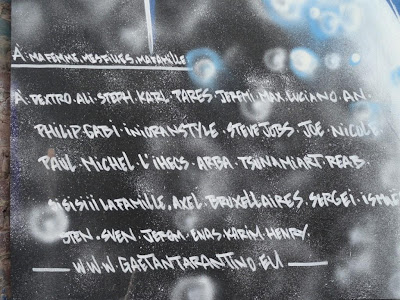 À. MA FEMME. MES FILLES. MA FAMILLE
À. DEXTRO. ALI. STEPH. KARL. PARES. JEREMI. MAX. LUCIANO. A.N.
PHILIP. GABI. INIORANSTYLE. STEVE JOBS. JOE. NICOLE
PAUL. MICHEL. L'IHECS. ARBA. TSUNAMIART. REAB.
LA FAMILLE. AXEL. BRUXELLAIRES. SERGEI.
STEN. SVEN. JEREM. ENAS. KARIM. HENRY.
WWW.GAETANTARANTINO.EU